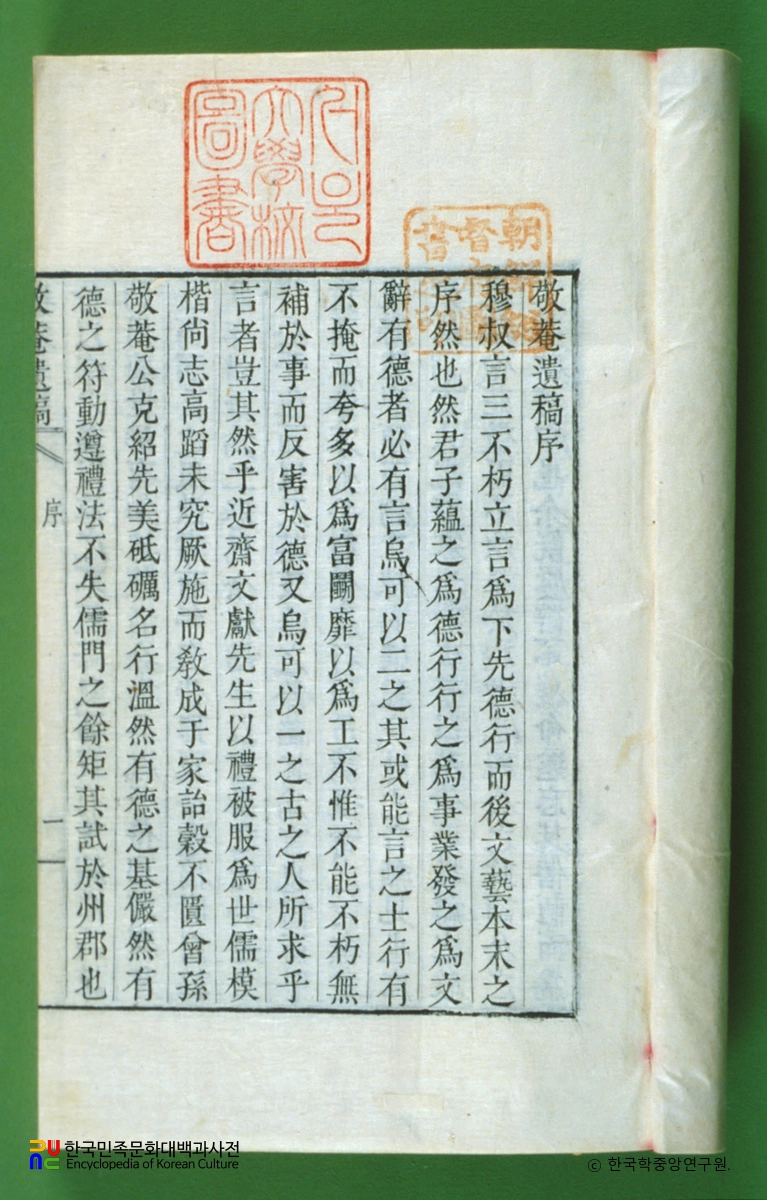 敬菴遺稿序
穆叔言三不朽立言爲下先德行而後文藝本末之
序然也然君子蘊之爲德行行之爲事業發之爲文
辭有德者必有言烏可以二之其或能言之士行有
不掩而夸多以爲富鬪靡以爲工不惟不能不朽無
補於事而反害於德又烏可以一之古之人所求乎
言者豈其然乎近齋文獻先生以禮被服爲世儒模
楷尙志高蹈未究厥施而敎成于家詒穀不匱曾孫
敬菴公克紹先美砥礪名行溫然有德之基儼然有
德之符動遵禮法不失儒門之餘矩其試於州郡也
敬菴遺稿
序
一
大學校
圖書
朝鮮
한국민족문화대백과사전
Encyclopedia of Korean Culture
© 한국학중앙연구원.